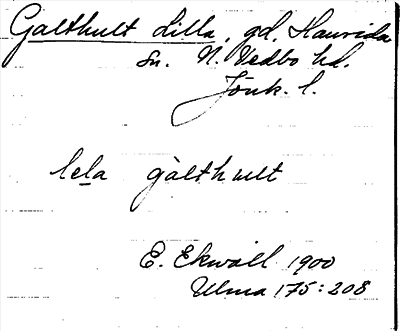 Galthult Lilla, gd, Haurida
sn. N. Vedbo hd.
Jönk. l.
lela gàlthult
E. Ekwall 1900
Ulma 175:208